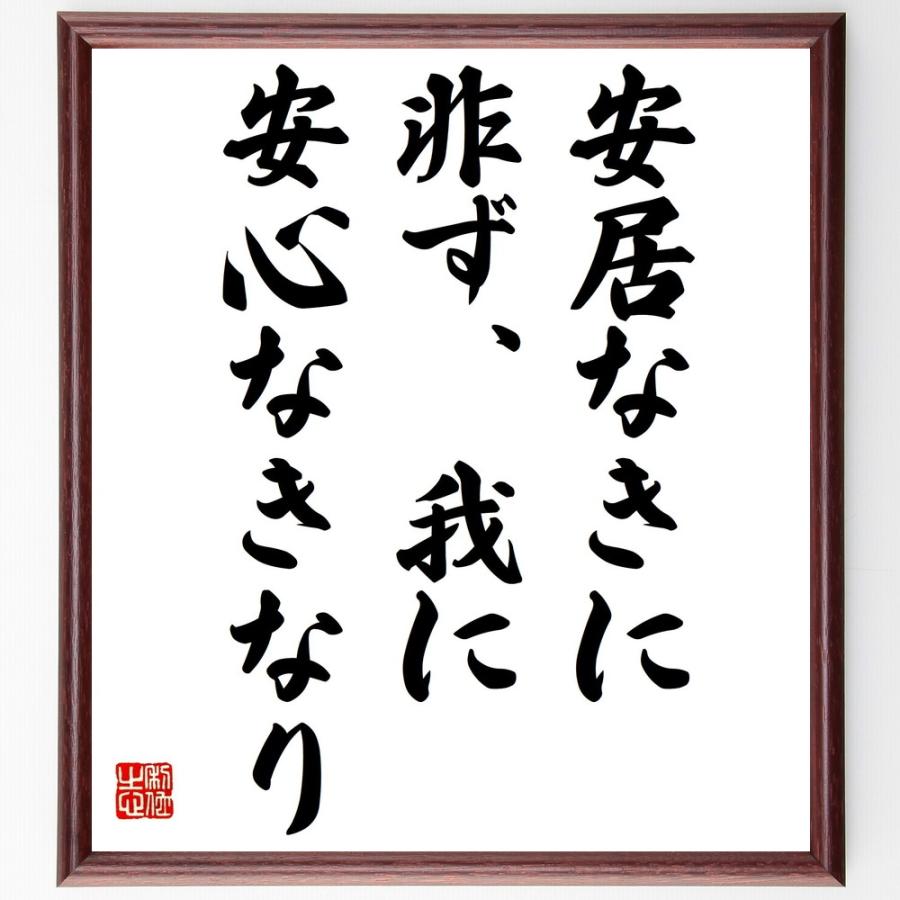 安居なきに
非ず、我に
安心なきなり